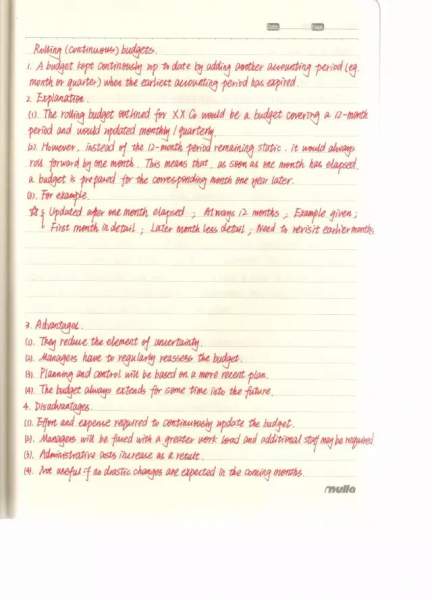 Date Page
Rolling (continuous) budgets.
1. A budget kept continuously up to date by adding another accounting period (eg.
month or quarter) when the earliest accounting period has expired.
2. Explanation.
(1). The rolling budget outlined for XX Co would be a budget covering a 12-month
period and would updated monthly / quarterly.
(2). However, instead of the 12-month period remaining static, it would always
roll forward by one month. This means that, as soon as one month has elapsed,
a budget is prepared for the corresponding month one year later.
(3). For example.
Updated after one month elapsed ; Always 12 months ; Example given ;
First month in detail ; Later month less detail ; Need to revisit earlier months
3. Advantages.
(1). They reduce the element of uncertainty.
(2). Managers have to regularly reassess the budget.
(3). Planning and control will be based on a more recent plan.
(4). The budget always extends for some time into the future.
4. Disadvantages.
(1). Effort and expense required to continuously update the budget.
(2). Managers will be faced with a greater work load and additional staff may be required
(3). Administrative costs increase as a result.
(4). Not useful if no drastic changes are expected in the coming months.